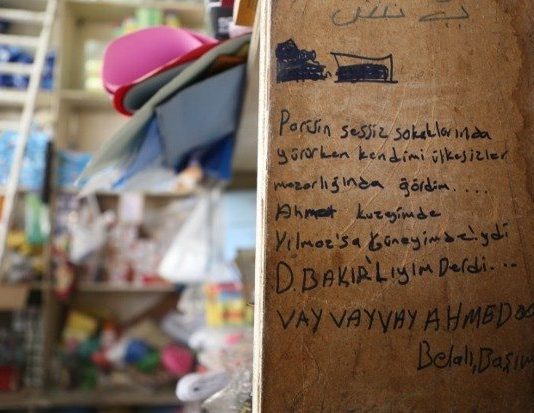 Parisin sessiz sokaklarında
yürürken kendimi ülkesizler
mezarlığında gördüm....
Ahmet kuzeyimde
Yılmoz'sa Güneyimde'ydi
D.BAKIR'LIYIM Derdi...
VAY VAY VAY AHMED
Belalı, Başım